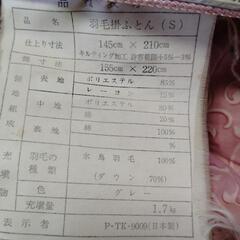 品質
品名 羽毛掛ふとん(S)
仕上り寸法 145cm × 210cm
キルティング加工 許容範囲+5%−3%
155cm × 220cm
表地 ポリエステル 85%
中地 ポリエステル 80%
綿 20%
綿 100%
充填物 羽毛の種類 水鳥羽毛 100%
(ダウン 70%)
色 グレー
充填量 1.7kg
表示者 P-TK-9009(日本製)